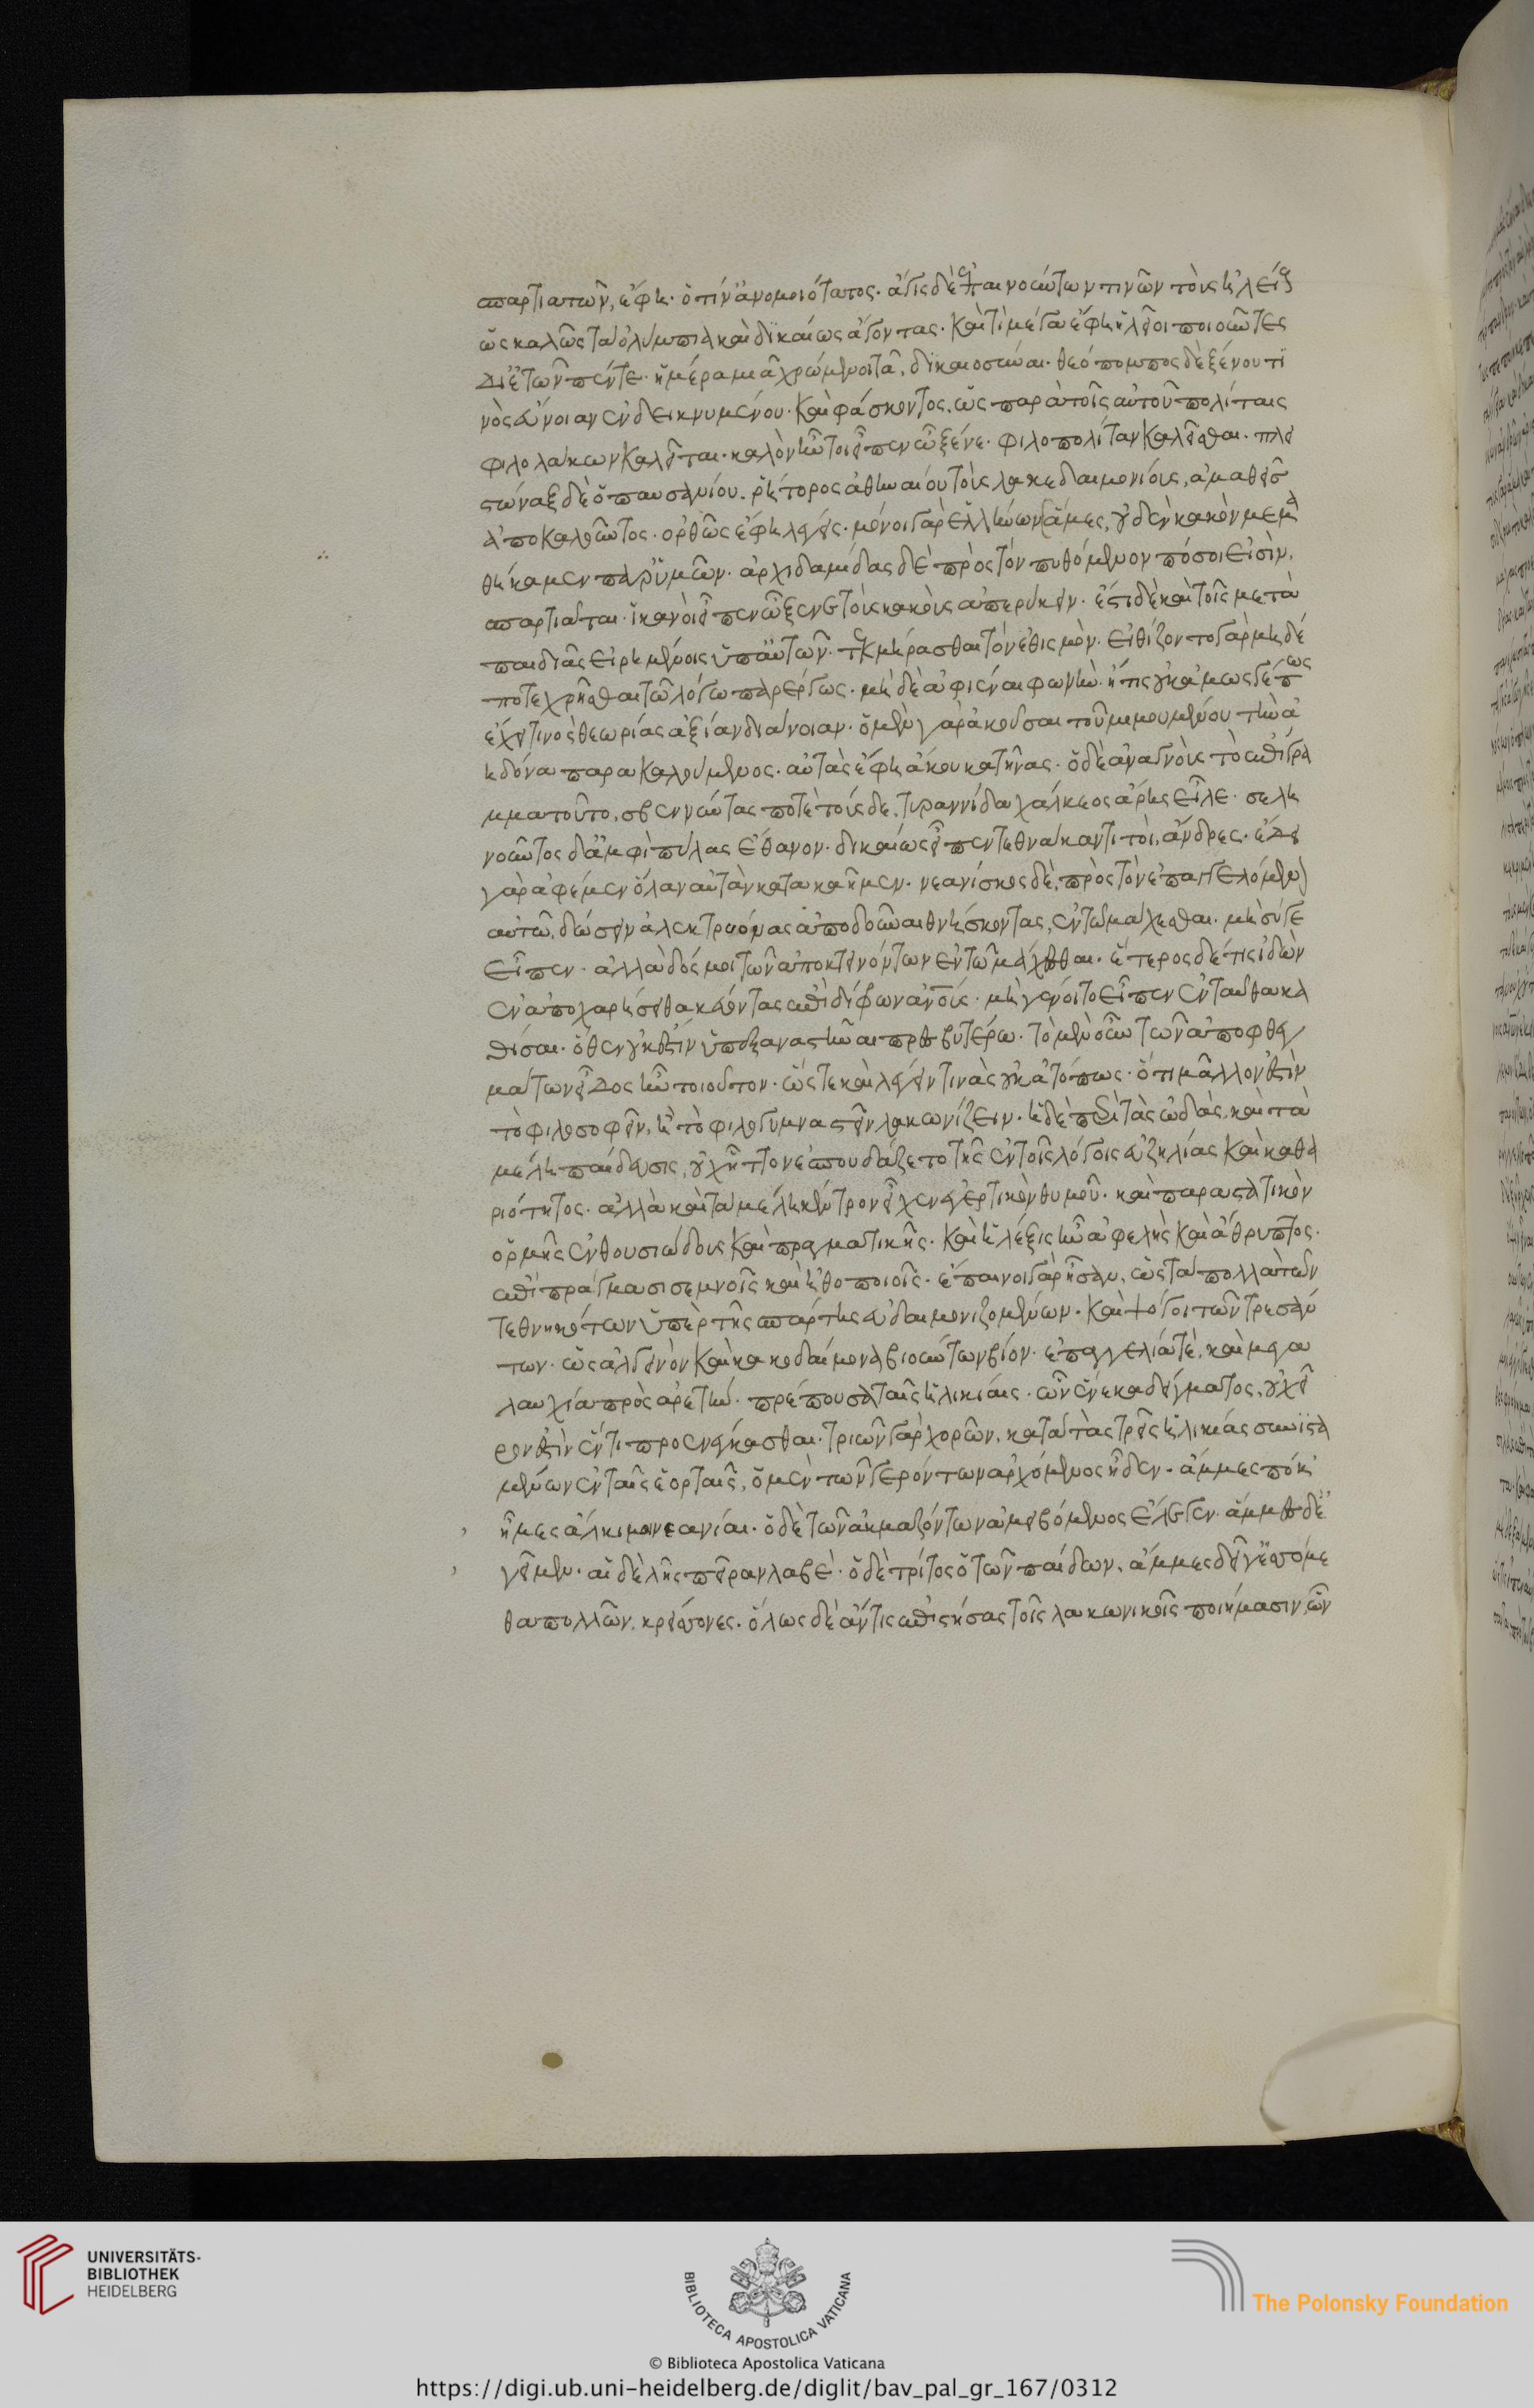 σπαρτιατῶν, ἔφη· ὁ τὶν ἀνομοιότατος· ἆγις δὲ ἐπαινούντων τινῶν τοὺς ἠλείους
ὡς καλῶς τὰ ὀλύμπια καὶ δικαίως ἄγοντας· καὶ τί μέγα ἔφη ἠλεῖοι ποιοῦντες
δι' ἐτῶν πέντε ἡμέρα μιᾷ χρώμενοι τᾷ, δικαιοσύναι· θεόπομπος δὲ ξένου τι
νὸς εὔνοιαν ἐνδεικνυμένου· καὶ φάσκοντος, ὡς παρὰ τοῖς αὐτοῦ πολίταις
φιλολάκων καλεῖται· καλὸν ἦν τοι εἶπεν ὦ ξένε· φιλοπολίταν καλεῖσθαι· πλει
στώναξ δὲ ὁ παυσανίου. ῥήτορος ἀθηναίου τοὺς λακεδαιμονίους, ἀμαθεῖς
ἀποκαλοῦντος· ὀρθῶς ἔφη λέγεις· μόνοι γὰρ ἑλλήνων ἄμες, οὐδὲν κακὸν μεμα
θήκαμεν παρ' ὑμῶν· ἀρχιδαμίδας δὲ πρὸς τὸν πυθόμενον πόσοι εἰσὶν,
σπαρτιάται· ἱκανοὶ εἶπεν ὦ ξένε τοὺς κακοὺς ἀπερύκειν· ἔστι δὲ καὶ τοῖς μετὰ
παιδιᾶς εἰρημένοις ὑπ' αὐτῶν· τεκμήρασθαι τὸν ἐθισμὸν· εἰθίζοντο γὰρ μηδέ
ποτε χρῆσθαι τῶ λόγω παρέργως· μὴ δὲ ἀφιέναι φωνὴν· ἥτις οὐκ ἀμωσγέπως
ἔχει τινὸς θεωρίας ἀξίαν διάνοιαν· ὁ μὲν γὰρ ἀκοῦσαι τοῦ μιμουμένου τὴν ἀ
ηδόνα παρακαλούμενος· αὐτὰς ἔφη ἄκουκα τήνας· ὁ δὲ ἀναγνοὺς τὸ ἐπίγρα
μμα τοῦτο, σβεννύντας ποτὲ τούσδε, τυραννίδα χάλκεος ἄρης εἷλε· σελη
νοῦντος δ' ἀμφὶ πύλας ἔθανον· δικαίως εἶπεν τεθνάκαντι τοὶ, ἄνδρες· ἔδει
γὰρ ἀφέμεν ὅλαν αὐτὰν κατακαῆμεν· νεανίσκος δὲ, πρὸς τὸν ἐπαγγελόμενον
αὐτῶ, δώσειν ἀλεκτρυόνας ἀποδοῦναι θνήσκοντας, ἐν τῶ μάχεσθαι· μὴ σύγε
εἶπεν· ἀλλὰ δός μοι τῶν ἀποκτεινόντων ἐν τῶ μάχεσθαι· ἕτερος δέ τις ἰδὼν
ἐν ἀποχωρήσει θακεύοντας ἐπὶ δίφων ἀνθρώπους· μὴ γένοιτο εἶπεν ἐνταῦθα κα
θίσαι· ὅθεν οὐκ ἔστιν ὑπεξαναστῆναι πρεσβυτέρω· τὸ μὲν οὖν τῶν ἀποφθεγ
μάτων εἶδος ἦν τοιοῦτον· ὥστε καὶ λέγειν τινὰς οὐκ ἀτόπως· ὅτι μᾶλλόν ἐστιν
τὸ φιλοσοφεῖν, ἢ τὸ φιλογυμναστεῖν λακωνίζειν· ἡ δὲ περὶ τὰς ὠδὰς, καὶ τὰ
μέλη παίδευσις, οὐχ ἧττον ἐσπουδάζετο τῆς ἐν τοῖς λόγοις εὐζηλίας καὶ καθα
ριότητος· ἀλλὰ καὶ τὰ μέλη κέντρον εἶχεν ἐγερτικὸν θυμοῦ· καὶ παραστατικὸν
ὁρμῆς ἐνθουσιώδους καὶ πραγματικῆς· καὶ ἡ λέξις ἦν ἀφελὴς καὶ ἄθρυπτος·
ἐπὶ πράγμασι σεμνοῖς καὶ ἠθοποιοῖς· ἔπαινοι γὰρ ἦσαν, ὡς τὰ πολλὰ τῶν
τεθνηκότων ὑπὲρ τῆς σπάρτης εὐδαιμονιζομένων· καὶ ψόγοι τῶν τρεσάν
των· ὡς ἀλγεινὸν καὶ κακοδαίμονα βιούντων βίον· ἐπαγγελία τὲ, καὶ μεγα
λαυχία πρὸς ἀρετὴν· πρέπουσα ταῖς ἡλικίαις· ὧν ἕνεκα δείγματος, οὐ χεῖ
ρόν ἐστιν ἕν τι προενέγκασθαι· τριῶν γὰρ χορῶν, κατὰ τὰς τρεῖς ἡλικίας συνιστα
μένων ἐν ταῖς ἑορταῖς, ὁ μὲν τῶν γερόντων ἀρχόμενος ᾖδεν· ἄμμες πόκ'
ἦμες ἄλκιμοι νεανίαι· ὁ δὲ τῶν ἀκμαζόντων ἀμειβόμενος ἔλεγεν· ἄμμες δέ
γ' εἰμέν· αἰ δὲ λῇς πεῖραν λαβέ· ὁ δὲ τρίτος ὁ τῶν παίδων, ἄμμες δέ γ' ἐσόμε
θα πολλῶν, κρείσσονες· ὅλως δὲ ἄν τις ἐπιστήσας τοῖς λακωνικοῖς ποιήμασιν, ὧν
UNIVERSITÄTS-
BIBLIOTHEK
HEIDELBERG
BIBLIOTECA APOSTOLICA VATICANA
The Polonsky Foundation
© Biblioteca Apostolica Vaticana
https://digi.ub.uni-heidelberg.de/diglit/bav_pal_gr_167/0312